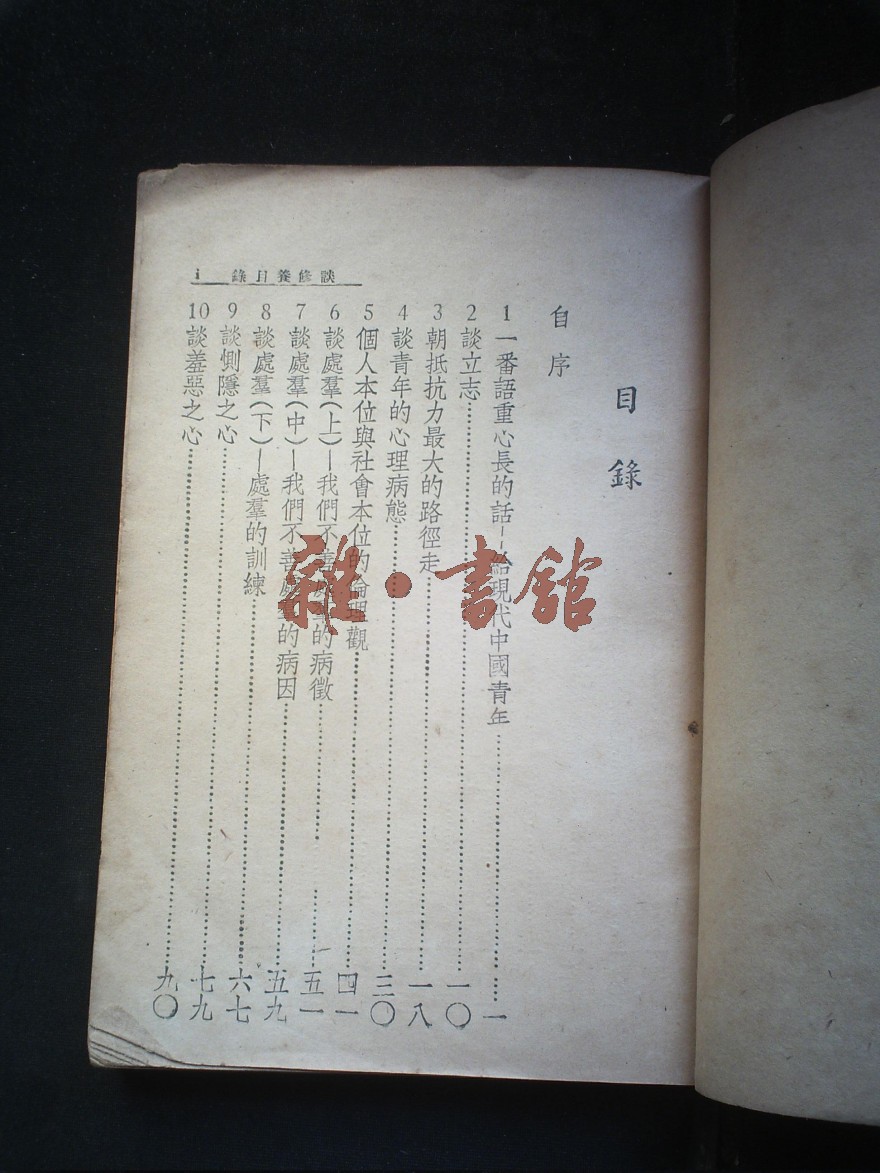 談修養目錄 i
目錄
自序
1 一番語重心長的話—給現代中國青年……一
2 談立志……一〇
3 朝抵抗力最大的路徑走……一八
4 談青年的心理病態……三〇
5 個人本位與社會本位的倫理觀……四一
6 談處羣(上)—我們不善處羣的病徵……五一
7 談處羣(中)—我們不善處羣的病因……五九
8 談處羣(下)—處羣的訓練……六七
9 談惻隱之心……七九
10 談羞惡之心……九〇
雜·書館